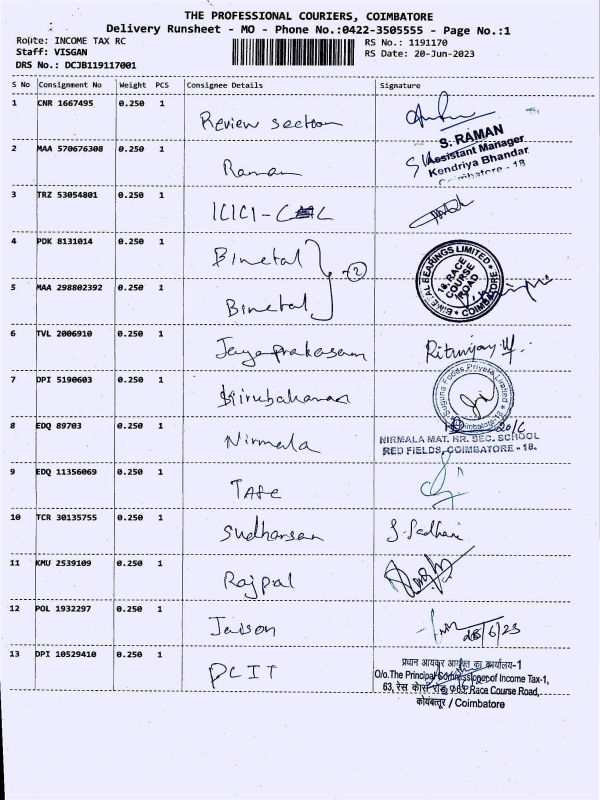 THE PROFESSIONAL COURIERS, COIMBATORE
Delivery Runsheet - MO - Phone No.:0422-3505555 - Page No.:1
Route: INCOME TAX RC
RS No.: 1191170
Staff: VISGAN
RS Date: 20-Jun-2023
DRS No.: DCJB119117001
S No Consignment No Weight PCS Consignee Details Signature
1 CNR 1667495 0.250 1 Review section
S. RAMAN
Assistant Manager
Kendriya Bhandar
Coimbatore - 18
2 MAA 570676308 0.250 1 Raman
3 TRZ 53054801 0.250 1 ICICI -
4 PDK 8131014 0.250 1 Bimetal
BIMETAL BEARINGS LIMITED
18, RACE COURSE ROAD
COIMBATORE
5 MAA 298802392 0.250 1 Bimetal
(2)
6 TVL 2006910 0.250 1 Jayaprakasam
7 DPI 5190603 0.250 1 Kirubakaran
Suguna Foods Private Limited
Coimbatore-18
8 EDQ 89703 0.250 1 Nirmala
20/6
NIRMALA MAT. HR. SEC. SCHOOL
RED FIELDS, COIMBATORE - 18.
9 EDQ 11356069 0.250 1 TAFE
10 TCR 30135755 0.250 1 Sudharsan
11 KMU 2539109 0.250 1 Rajpal
12 POL 1932297 0.250 1 Jeison
13 DPI 10529410 0.250 1 PCIT
प्रधान आयकर आयुक्त का कार्यालय-1
O/o.The Principal Commissioner of Income Tax-1,
63, रेस कोर्स रोड, 63, Race Course Road,
कोयंबत्तूर / Coimbatore